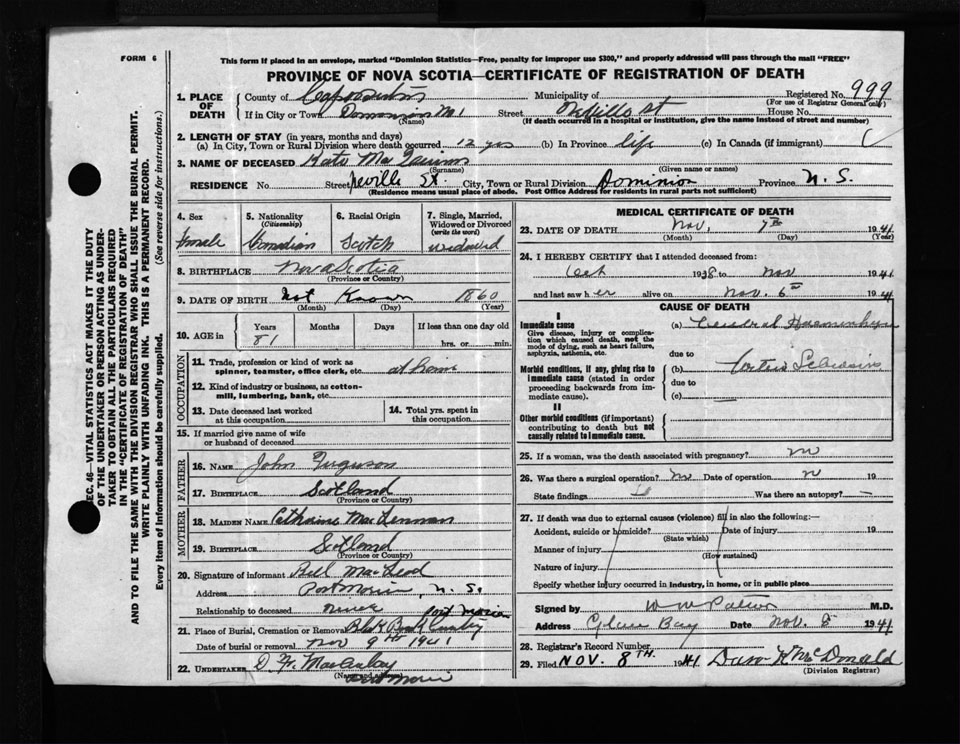 FORM 6
This form if placed in an envelope, marked "Dominion Statistics—Free, penalty for improper use $300," and properly addressed will pass through the mail "FREE"
PROVINCE OF NOVA SCOTIA—CERTIFICATE OF REGISTRATION OF DEATH
SEC. 46—VITAL STATISTICS ACT MAKES IT THE DUTY
OF THE UNDERTAKER OR PERSON ACTING AS UNDER-
TAKER TO OBTAIN ALL THE PARTICULARS REQUIRED
IN THE "CERTIFICATE OF REGISTRATION OF DEATH"
AND TO FILE THE SAME WITH THE DIVISION REGISTRAR WHO SHALL ISSUE THE BURIAL PERMIT.
WRITE PLAINLY WITH UNFADING INK. THIS IS A PERMANENT RECORD.
Every item of Information should be carefully supplied. (See reverse side for instructions.)
1. PLACE OF DEATH County of Cape Breton Municipality of Registered No. 999
(For use of Registrar General only)
If in City or Town Dominion No 1 (Name) Street Neville St House No.
(If death occurred in a hospital or institution, give the name instead of street and number)
2. LENGTH OF STAY (in years, months and days)
(a) In City, Town or Rural Division where death occurred 12 yrs (b) In Province life (c) In Canada (if immigrant)
3. NAME OF DECEASED Kate Mac
(Surname) (Given name or names)
RESIDENCE No. Street Neville St. City, Town or Rural Division Dominion Province N. S.
(Residence means usual place of abode. Post Office Address for residents in rural parts not sufficient)
4. Sex female
5. Nationality (Citizenship) Canadian
6. Racial Origin Scotch
7. Single, Married, Widowed or Divorced (write the word) widowed
8. BIRTHPLACE Nova Scotia
(Province or Country)
9. DATE OF BIRTH Not Known 1860
(Month) (Day) (Year)
10. AGE in Years 81 Months Days If less than one day old hrs. or min.
OCCUPATION
11. Trade, profession or kind of work as spinner, teamster, office clerk, etc. at home
12. Kind of industry or business, as cotton-mill, lumbering, bank, etc.
13. Date deceased last worked at this occupation
14. Total yrs. spent in this occupation
15. If married give name of wife or husband of deceased
FATHER
16. NAME John Ferguson
17. BIRTHPLACE Scotland
(Province or Country)
MOTHER
18. MAIDEN NAME Catherine MacLennan
19. BIRTHPLACE Scotland
(Province or Country)
20. Signature of informant Bell MacLeod
Address Port Morien, N. S.
Relationship to deceased niece
21. Place of Burial, Cremation or Removal Black Brook Cemetery Port Morien
Date of burial or removal Nov 9th 1941
22. UNDERTAKER MacAulay
(Name and address) Port Morien
MEDICAL CERTIFICATE OF DEATH
23. DATE OF DEATH Nov. 7th 1941
(Month) (Day) (Year)
24. I HEREBY CERTIFY that I attended deceased from:
Oct 1938 to Nov 1941
and last saw her alive on Nov. 6th 1941
CAUSE OF DEATH
I
Immediate cause
Give disease, injury or complication which caused death, not the mode of dying, such as heart failure, asphyxia, asthenia, etc.
(a) Cerebral Haemorrhage
due to
Morbid conditions, if any, giving rise to immediate cause (stated in order proceeding backwards from immediate cause).
(b) Sclerosis
due to
(c)
II
Other morbid conditions (if important) contributing to death but not causally related to immediate cause.
25. If a woman, was the death associated with pregnancy? no
26. Was there a surgical operation? No Date of operation 19
State findings Was there an autopsy? —
27. If death was due to external causes (violence) fill in also the following:—
Accident, suicide or homicide? Date of injury 19
(State which)
Manner of injury
(How sustained)
Nature of injury
Specify whether injury occurred in industry, in home, or in public place
Signed by M.D.
Address Glace Bay Date Nov. 8 1941
28. Registrar's Record Number
29. Filed NOV. 8TH. 1941 McDonald
(Division Registrar)